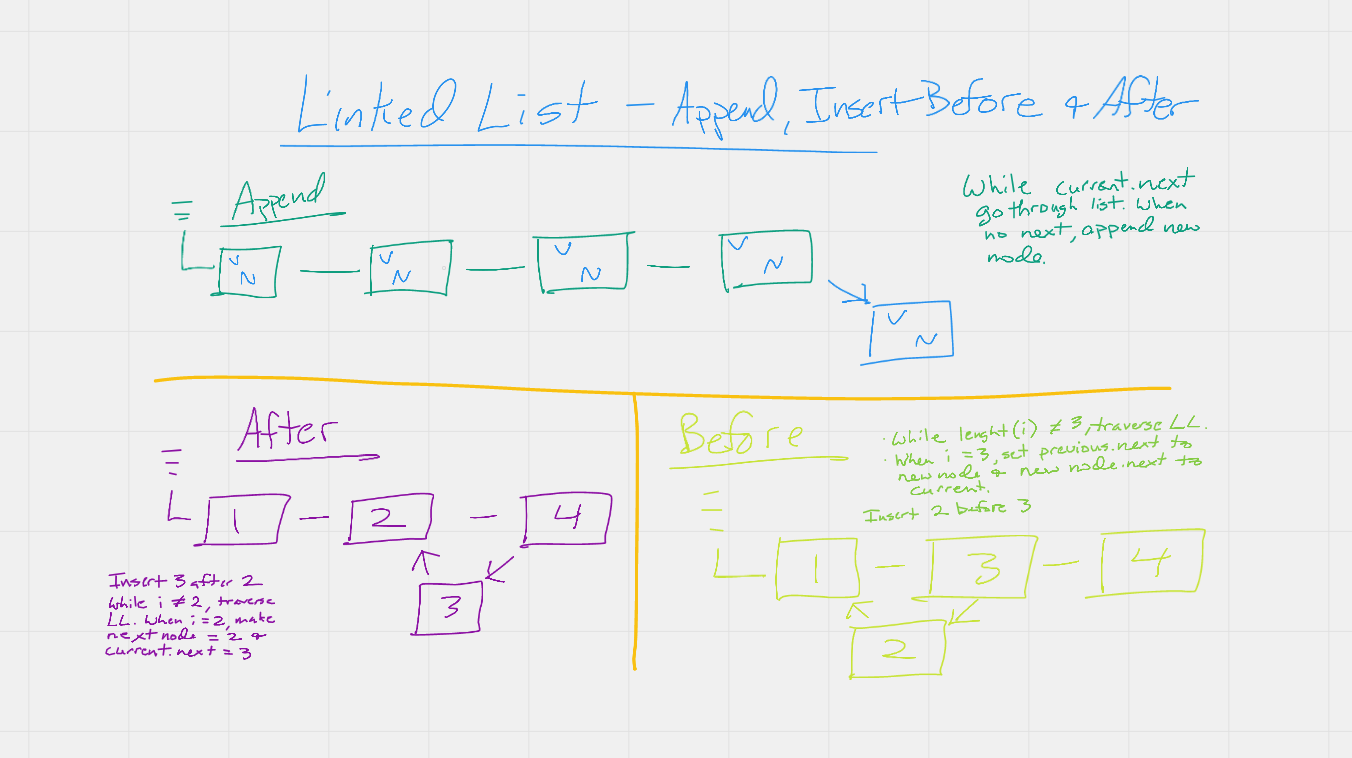 Linked List - Append, Insert Before & After
Append
While current.next
go through list. When
no next, append new
node.
V N V N V N V N
V N
After
1 2 4
3
Insert 3 after 2
While i ≠ 2, traverse
LL. When i = 2, make
next node = 2 &
current.next = 3
Before
· While lenght(i) ≠ 3, traverse LL.
· When i = 3, set previous.next to
new node & new node.next to
current.
Insert 2 before 3
1 3 4
2